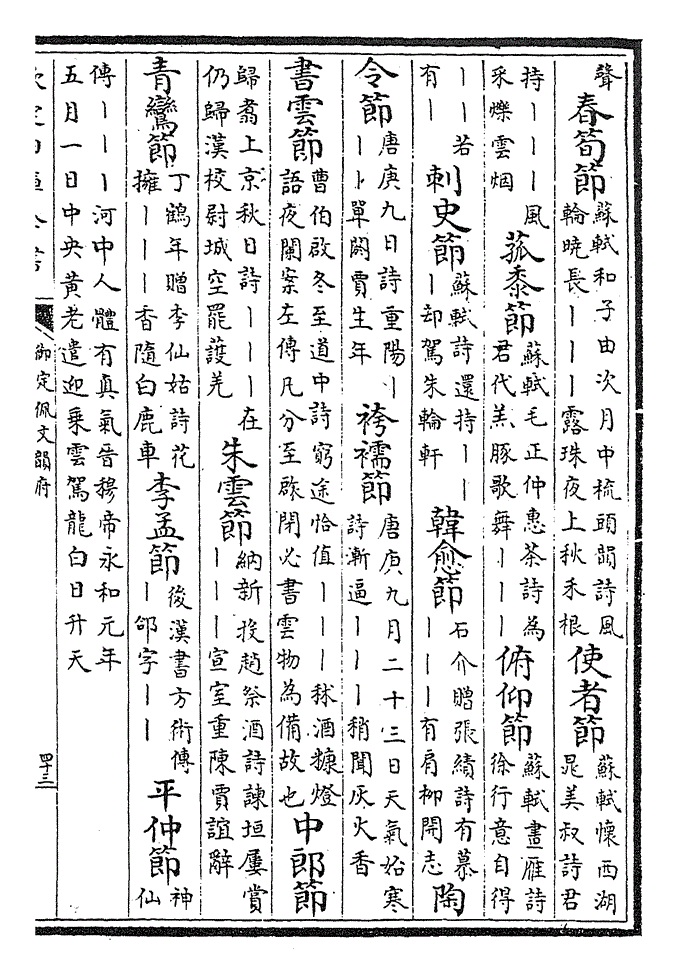 聲春筍節蘇軾和子由次月中梳頭韻詩風輪曉長｜｜｜露珠夜上秋禾根使者節蘇軾懷西湖晁美叔詩君
持｜｜｜風采爍雲烟菰黍節蘇軾毛正仲惠茶詩為君伐羔豚歌舞｜｜｜俯仰節蘇軾畫雁詩徐行意自得
｜｜若有｜刺史節蘇軾詩還持｜｜｜却駕朱輪軒韓愈節石介贈張績詩有慕｜｜｜有肩柳開志陶
令節唐庚九日詩重陽｜｜｜單閼賈生年袴襦節唐庚九月二十三日天氣始寒詩漸逼｜｜｜稍聞灰火香
書雲節曹伯啟冬至道中詩窮途恰值｜｜｜秫酒糠燈語夜闌案左傳凡分至啟閉必書雲物為備故也中郎節
歸翥上京秋日詩｜｜｜在仍歸漢校尉城空罷護羌朱雲節納新投趙祭酒詩諫垣屢賞｜｜｜宣室重陳賈誼辭
青鸞節丁鶴年贈李仙姑詩花擁｜｜｜香隨白鹿車李孟節後漢書方術傳｜郃字｜｜平仲節神仙
傳｜｜｜河中人體有真氣晉穆帝永和元年五月一日中央黃老遣迎乘雲駕龍白日升天
欽定四庫全書
御定佩文韻府
四十三